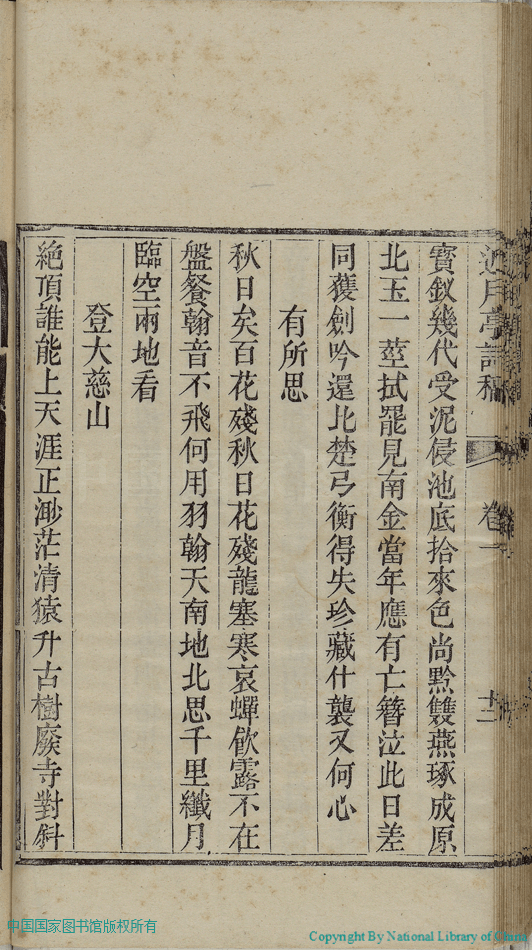 近月亭詩稿 卷一 十二
寶釵幾代受泥侵池底拾來色尚黔雙燕琢成原
北玉一莖拭罷見南金當年應有亡簪泣此日差
同獲劍吟還比楚弓衡得失珍藏什襲又何心
有所思
秋日矣百花殘秋日花殘龍塞寒哀蟬飲露不在
盤餐翰音不飛何用羽翰天南地北思千里纖月
臨空兩地看
登大慈山
絶頂誰能上天涯正渺茫清猿升古樹廢寺對斜
中国国家图书馆版权所有
Copyright By National Library of China